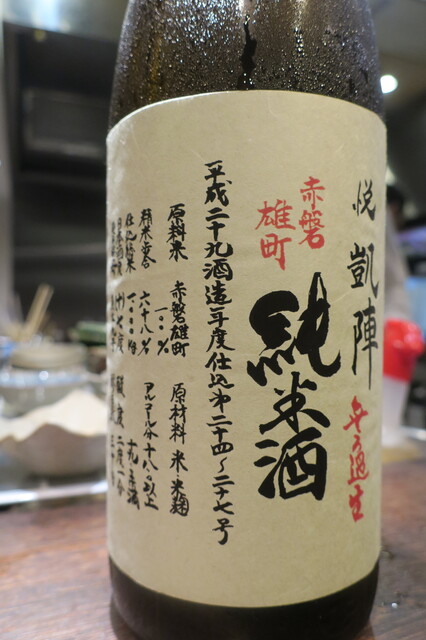 悦凱陣
無ろ過生
赤磐
雄町
純米酒
平成二十九酒造年度仕込第二十四～二十七号
原料米 赤磐雄町
一〇〇%
原材料 米・米麹
精米歩合 六十八%
アルコール分 十八度以上
仕込総米
日本酒度
酸度 二度